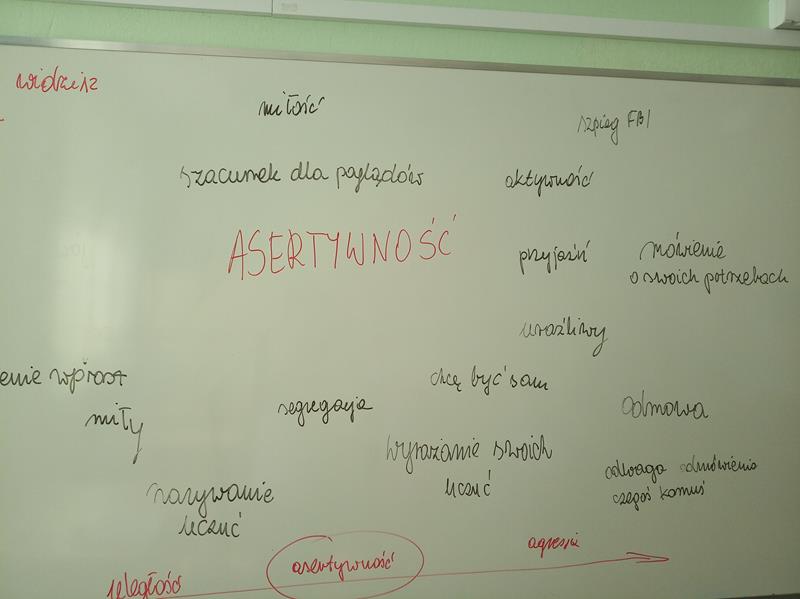 widzisz
miłość
szpieg FBI
szacunek dla poglądów
aktywność
ASERTYWNOŚĆ
przyjaźń
mówienie
o swoich potrzebach
wrażliwy
enie wprost
chcę być sam
miły
segregacja
odmowa
wyrażanie swoich
uczuć
odwaga odmówienia
czegoś komuś
nazywanie
uczuć
uległość
asertywność
agresja